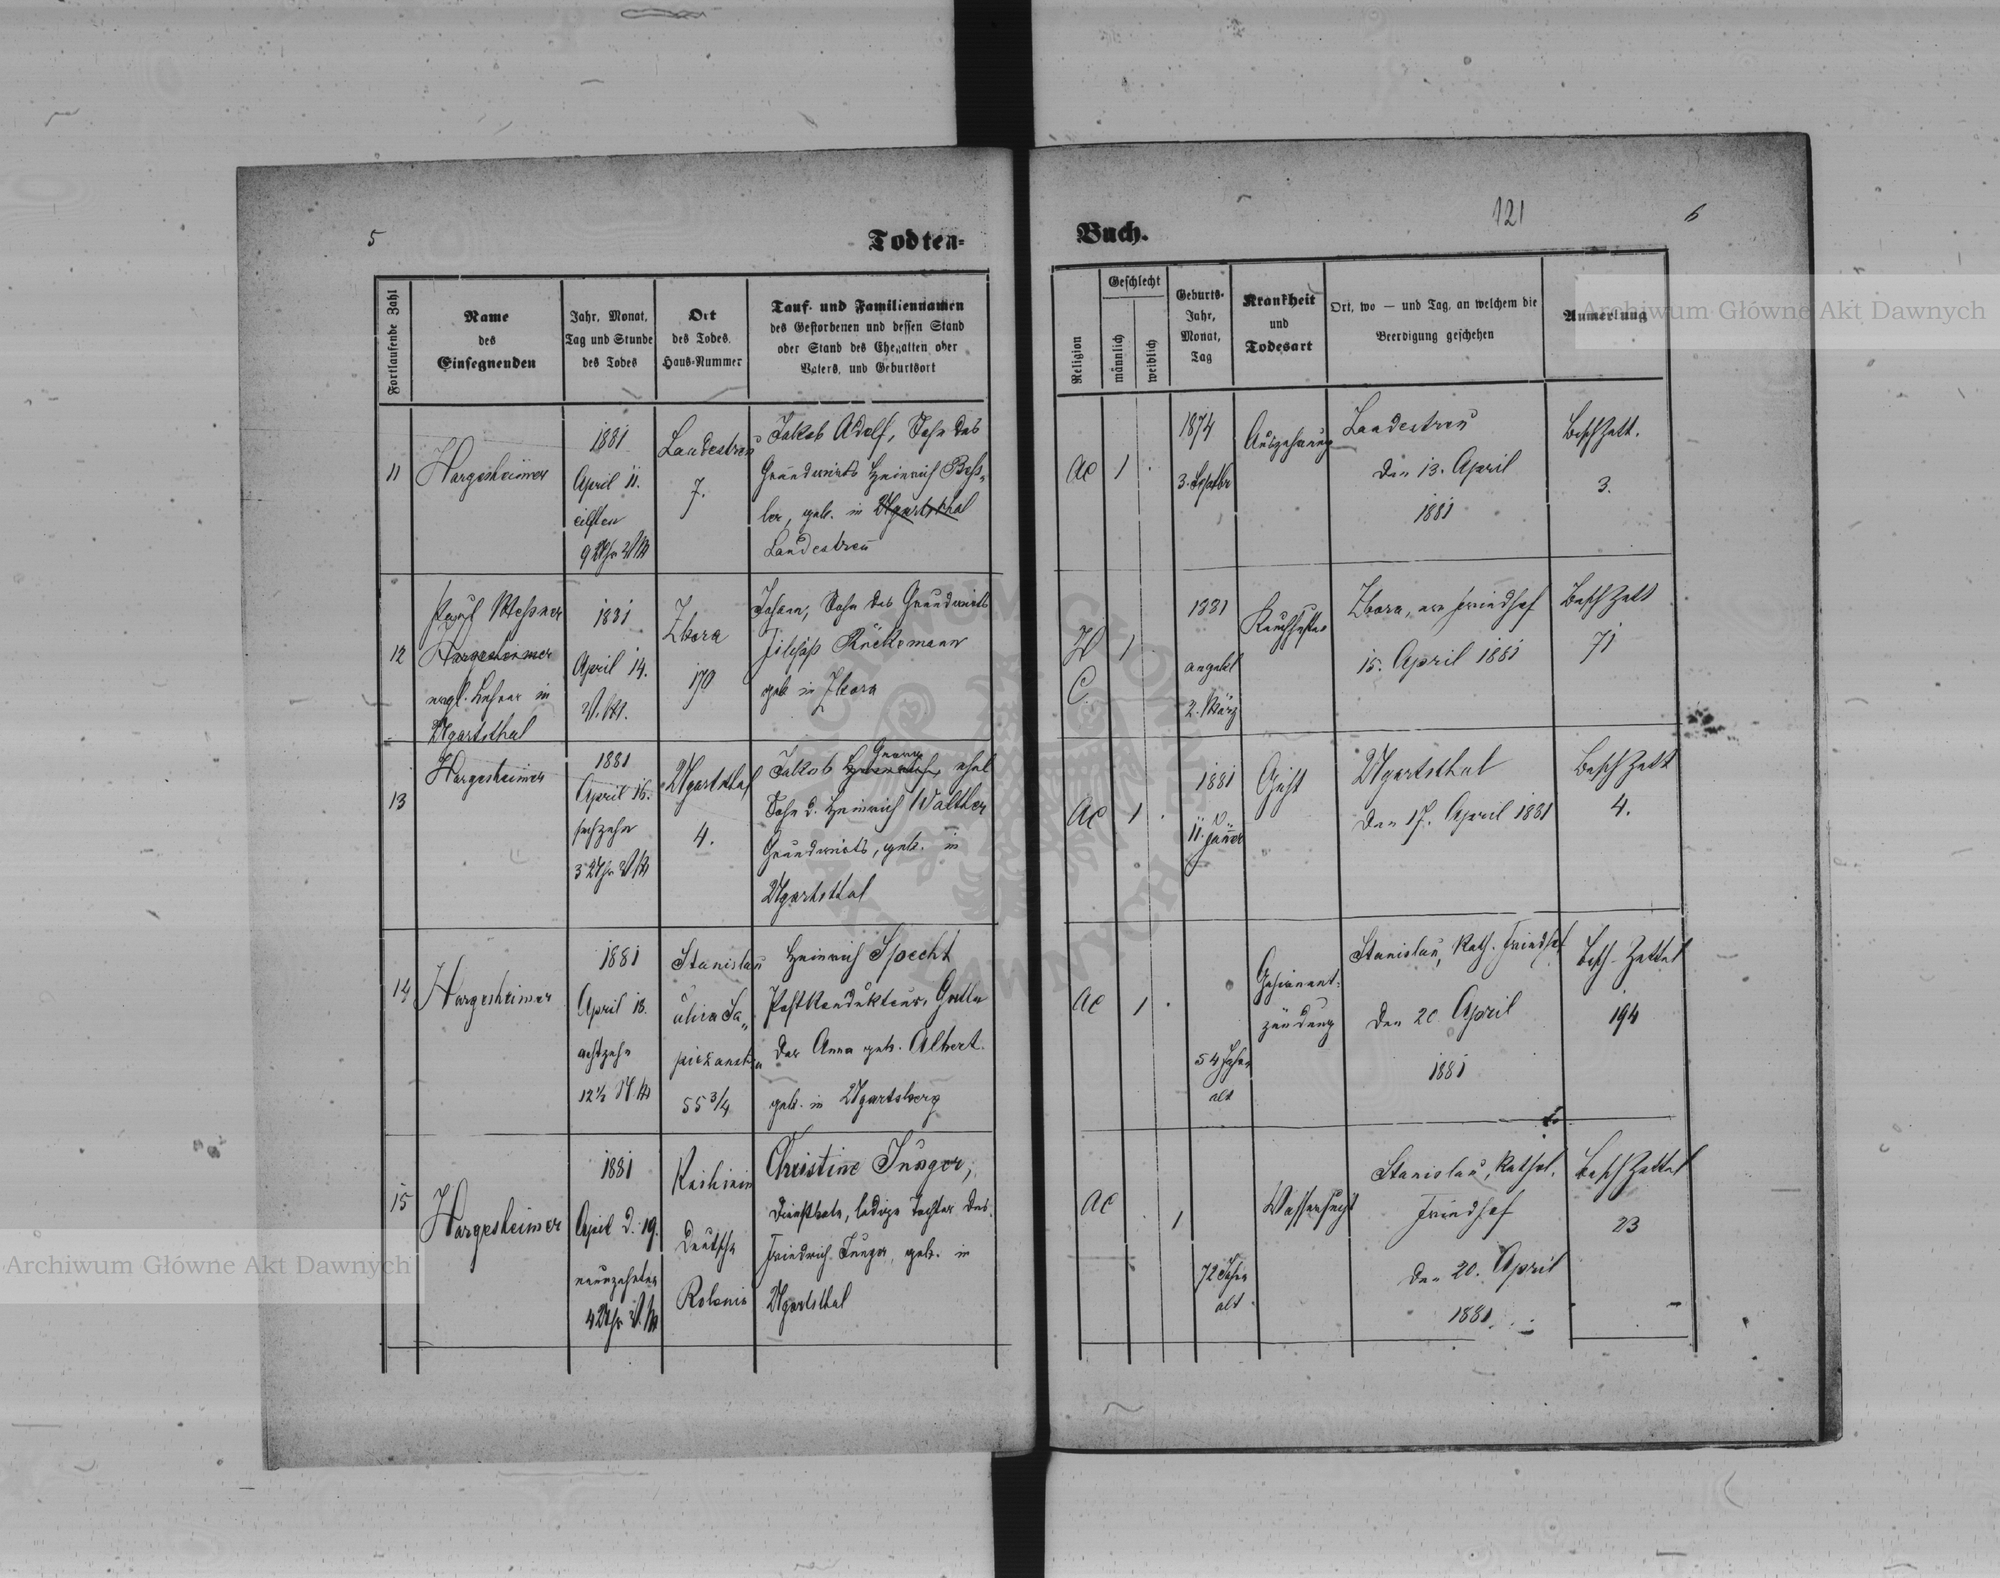 5
Todten-
Buch.
121
6
Archiwum Główne Akt Dawnych
Fortlaufende Zahl
Name
des
Einsegnenden
Jahr, Monat,
Tag und Stunde
des Todes
Ort
des Todes,
Haus-Nummer
Tauf- und Familiennamen
des Gestorbenen und dessen Stand
oder Stand des Ehegatten oder
Vaters, und Geburtsort
Religion
Geschlecht
männlich
weiblich
Geburts-
Jahr,
Monat,
Tag
Krankheit
und
Todesart
Ort, wo — und Tag, an welchem die
Beerdigung geschehen
Anmerkung
11
Hargesheimer
1881
April 11.
eilften
9 Uhr VM
Landestreu
7.
Jakob Adolf, Sohn des
Grundwirts Heinrich
geb. in Ugartsthal
Landestreu
AC
1
1874
3.
Auszehrung
Landestreu
den 13. April
1881
BeschZett.
3.
12
Hargesheimer
in
Ugartsthal
1881
April 14.
V.M.
Zbora
170
Johann, Sohn des Grundwirts
geb in Zbora
H
C.
1
1881
angebl
2. März
Zbora, am Friedhof
15. April 1881
Besch Zett
71
13
Hargesheimer
1881
April 16.
sechzehn
3 Uhr VM
Ugartsthal
4.
Jakob Heinrich, Georg ehel
Sohn d. Heinrich Walther
Grundwirts, geb. in
Ugartsthal
AC
1
1881
11. Jäner
Gicht
Ugartsthal
den 17. April 1881
Besch Zett
4.
14
Hargesheimer
1881
April 18.
achtzehn
12½ N.M
Stanislau
ulica Sa-
piezanska
55 3/4
Heinrich Specht
Postkondukteur, Gatte
der Anna geb. Albert.
geb. in Ugartsberg
AC
1
54 Jahre
alt
Gehirnent-
zündung
Stanislau, Kath. Friedhof
den 20 April
1881
Besch-Zettel
194
15
Hargesheimer
1881
April d. 19.
neunzehnten
4 Uhr V.M
Knihinin
Deutsche
Kolonie
Christine Junger,
Dienstbote, ledige Tochter des
Friedrich Junger, geb. in
Ugartsthal
AC
1
72 Jahre
alt
Wassersucht
Stanislau, Kathol.
Friedhof
den 20. April
1881
Besch Zettel
23
Archiwum Główne Akt Dawnych